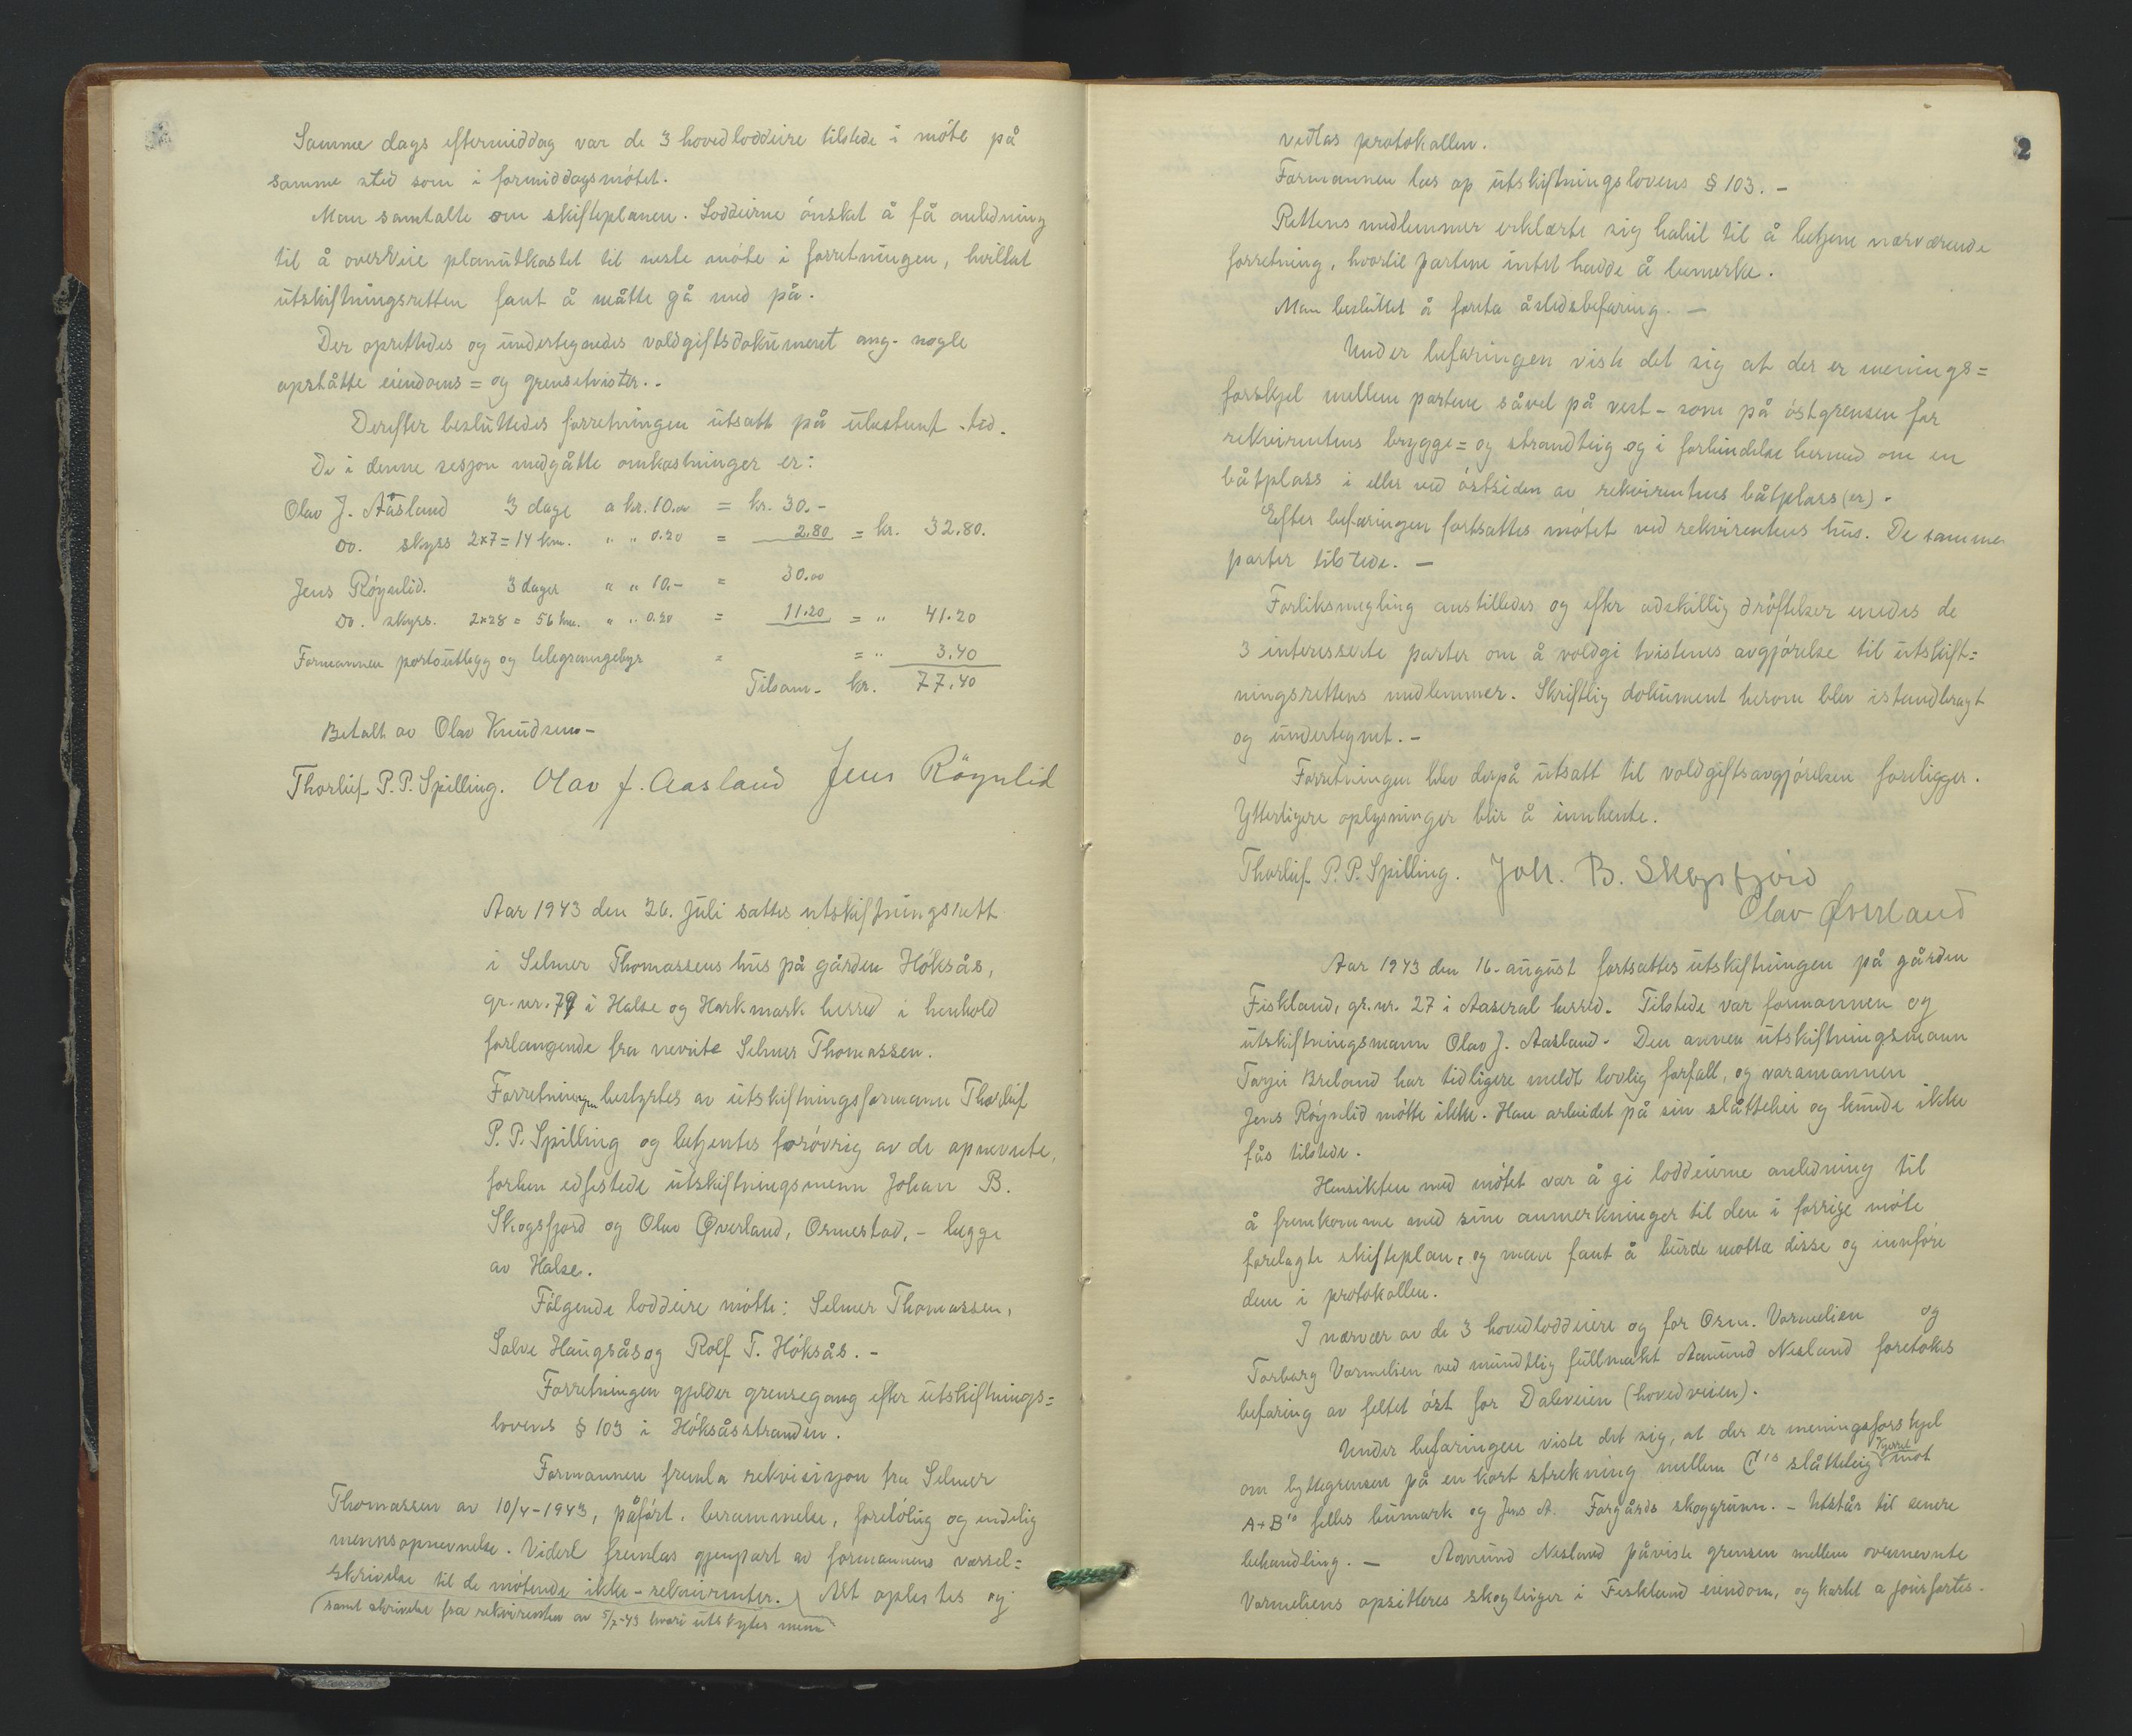 Samme dags eftermiddag var de 3 hovedloddeiere tilstede i møte på
samme sted som i formiddagsmøtet.
Man samtalte om skifteplanen. Loddeierne ønsket å få anledning
til å overveie planutkastet til neste møte i forretningen, hvilket
utskiftningsretten fant å måtte gå med på.
Der oprettedes og undertegnedes voldgiftsdokument ang. nogle
opståtte eiendoms= og grensetvister.-
Derefter besluttedes forretningen utsatt på ubestemt tid.
De i denne sesjon medgåtte omkostninger er:
Olav J. Åsland 3 dage a kr. 10.00 = kr. 30.-
Do. skyss 2x7=14 km. " " 0.20 = 2.80 = kr. 32.80.
Jens Røynlid. 3 dager " " 10.- = 30.00
Do. skyss. 2x28 = 56 km. " " 0.20 = 11.20 = " 41.20
Formannen portoutlegg og telegramgebyr = = " 3.40
Tilsam- kr. 77.40
Betalt av Olav Knudsen-
Thorleif P. P. Spilling. Olav J. Aasland Jens Röynlid
Aar 1943 den 26. juli sattes utskiftningsrett
i Selmer Thomassens hus på gården Høksås,
gr. nr. 79 i Halse og Harkmark herred i henhold
forlangende fra nevnte Selmer Thomassen.
Forretningen bestyrtes av utskiftningsformann Thorleif
P. P. Spilling og betjentes forøvrig av de opnevnte,
forhen edfestede utskiftningsmenn Johan B.
Skogsfjord og Olav Øverland, Ormestad, - begge
av Halse.
Følgende loddeiere møtte: Selmer Thomassen,
Salve Haugsås og Rolf T. Høksås. -
Forretningen gjelder grensegang efter utskiftnings=
lovens § 103 i Høksåsstranden.
Formannen fremla rekvisisjon fra Selmer
Thomassen av 10/4-1943, påført berammelse, foreløbig og endelig
mennsopnevnelse. Videre fremlas gjenpart av formannens varsel=
skrivelse til de møtende ikke-rekvirenter. Alt oplestes og
(samt skrivelse fra rekvirenten av 5/7-43 hvori utskytes menn)
2
vedlas protokollen.
Formannen las op utskiftningslovens § 103. -
Rettens medlemmer erklærte sig habil til å betjene nærværende
forretning, hvortil partene intet hadde å bemerke.
Man besluttet å foreta åstedsbefaring. -
Under befaringen viste det sig at der er menings=
forskjel mellem partene såvel på vest- som på østgrensen for
rekvirentens brygge= og strandteig og i forbindelse hermed om en
båtplass i eller ved østsiden av rekvirentens båtplass(er).
Efter befaringen fortsattes møtet ved rekvirentens hus. De samme
parter tilstede. -
Forliksmegling anstilledes og efter adskillig drøftelser enedes de
3 interesserte parter om å voldgi tvistenes avgjørelse til utskift=
ningsrettens medlemmer. Skriftlig dokument herom blev istandbragt
og undertegnet. -
Forretningen blev derpå utsatt til voldgiftsavgjørelsen foreligger.
Ytterligere oplysninger blir å innhente.
Thorleif P. P. Spilling. Joh. B. Skogsfjord
Olav Øverland
Aar 1943 den 16. august fortsattes utskiftningen på gården
Fiskland, gr. nr. 27 i Aaseral herred. Tilstede var formannen og
utskiftningsmann Olav J. Aasland. Den annen utskiftningsmann
Torjei Breland har tidligere meldt lovlig forfall, og varamannen
Jens Røynlid møtte ikke. Han arbeidet på sin slåttehei og kunde ikke
fås tilstede.
Hensikten med møtet var å gi loddeierne anledning til
å fremkomme med sine anmerkninger til den i forrige møte
forelagte skifteplan, og man fant å burde motta disse og innføre
dem i protokollen.
I nærvær av de 3 hovedloddeiere og for Osm. Vormelien og
Torborg Vormelien ved mundtlig fullmakt Aanund Nesland foretokes
befaring av feltet øst for Daleveien (hovedveien).
Under befaringen viste det sig, at der er meningsforskjel
om byttegrensen på en kort strekning mellem C's slåtteteig Kjerret mot
A+B's felles bumark og Jens A. Forgårds skoggrunn. - Utstår til senere
behandling. - Aanund Nesland påviste grensen mellem ovennevnte
Vormeliens opsitteres skogteiger i Fiskland eiendom, og kartet ajourførtes.